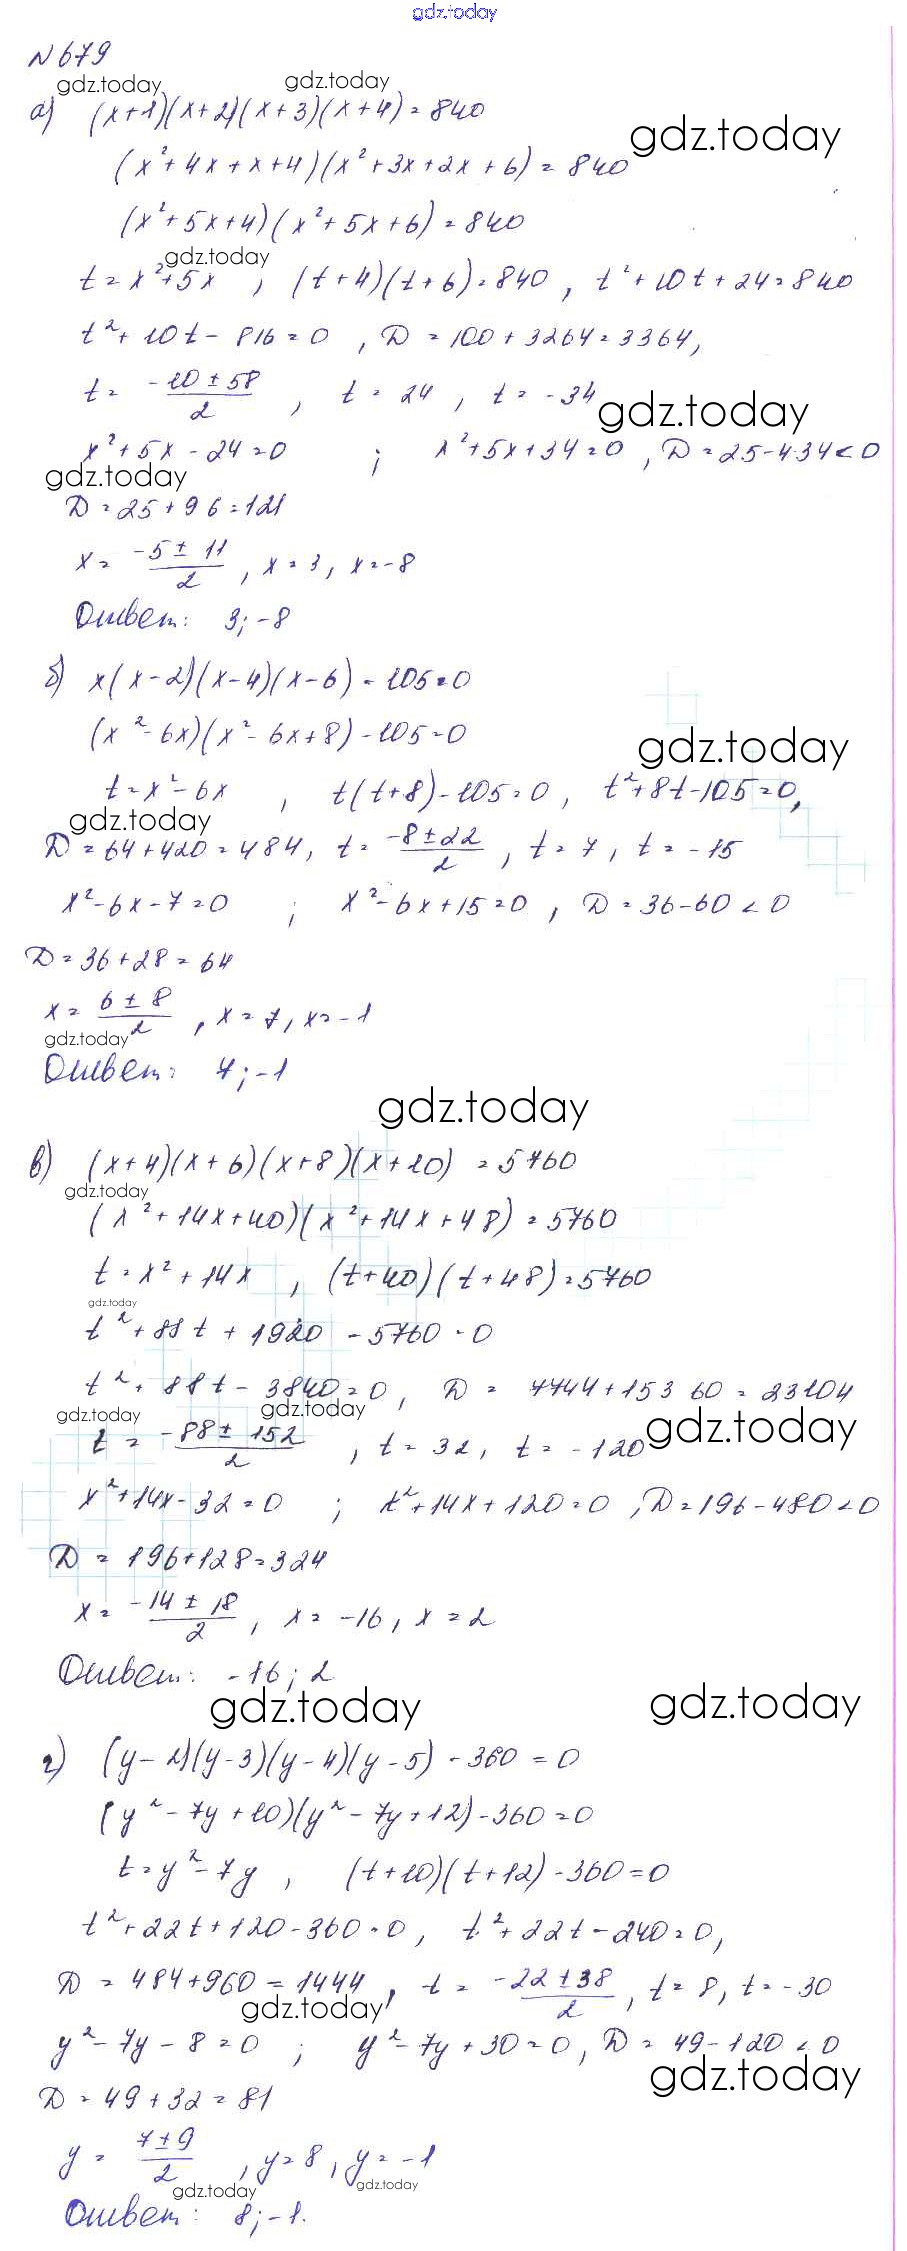 gdz.today
№679
gdz.today gdz.today
а) (x+1)(x+2)(x+3)(x+4)=840
gdz.today
(x²+4x+x+4)(x²+3x+2x+6)=840
(x²+5x+4)(x²+5x+6)=840
gdz.today
t=x²+5x , (t+4)(t+6)=840, t²+10t+24=840
t²+10t-816=0 , D=100+3264=3364,
t= (-10±58)/2 , t=24 , t=-34
gdz.today
x²+5x-24=0 ; x²+5x+34=0 , D=25-4·34<0
gdz.today
D=25+96=121
x= (-5±11)/2 , x=3, x=-8
Ответ: 3; -8
б) x(x-2)(x-4)(x-6)-105=0
(x²-6x)(x²-6x+8)-105=0
gdz.today
t=x²-6x , t(t+8)-105=0, t²+8t-105=0,
gdz.today
D=64+420=484, t= (-8±22)/2 , t=7, t=-15
x²-6x-7=0 ; x²-6x+15=0 , D=36-60<0
D=36+28=64
x= (6±8)/2 , x=7, x=-1
gdz.today
Ответ: 7; -1
gdz.today
в) (x+4)(x+6)(x+8)(x+10)=5760
gdz.today
(x²+14x+40)(x²+14x+48)=5760
t=x²+14x , (t+40)(t+48)=5760
gdz.today
t²+88t+1920-5760=0
t²+88t-3840=0, D=7744+15360=23104
gdz.today gdz.today gdz.today
t= (-88±152)/2 , t=32, t=-120
x²+14x-32=0 ; x²+14x+120=0 , D=196-480<0
D=196+128=324
x= (-14±18)/2 , x=-16, x=2
Ответ: -16; 2
gdz.today gdz.today
г) (y-2)(y-3)(y-4)(y-5)-360=0
(y²-7y+10)(y²-7y+12)-360=0
t=y²-7y , (t+10)(t+12)-360=0
t²+22t+120-360=0, t²+22t-240=0,
D=484+960=1444, t= (-22±38)/2 , t=8, t=-30
gdz.today
y²-7y-8=0 ; y²-7y+30=0, D=49-120<0
gdz.today
D=49+32=81
y= (7±9)/2 , y=8, y=-1
gdz.today gdz.today
Ответ: 8; -1.